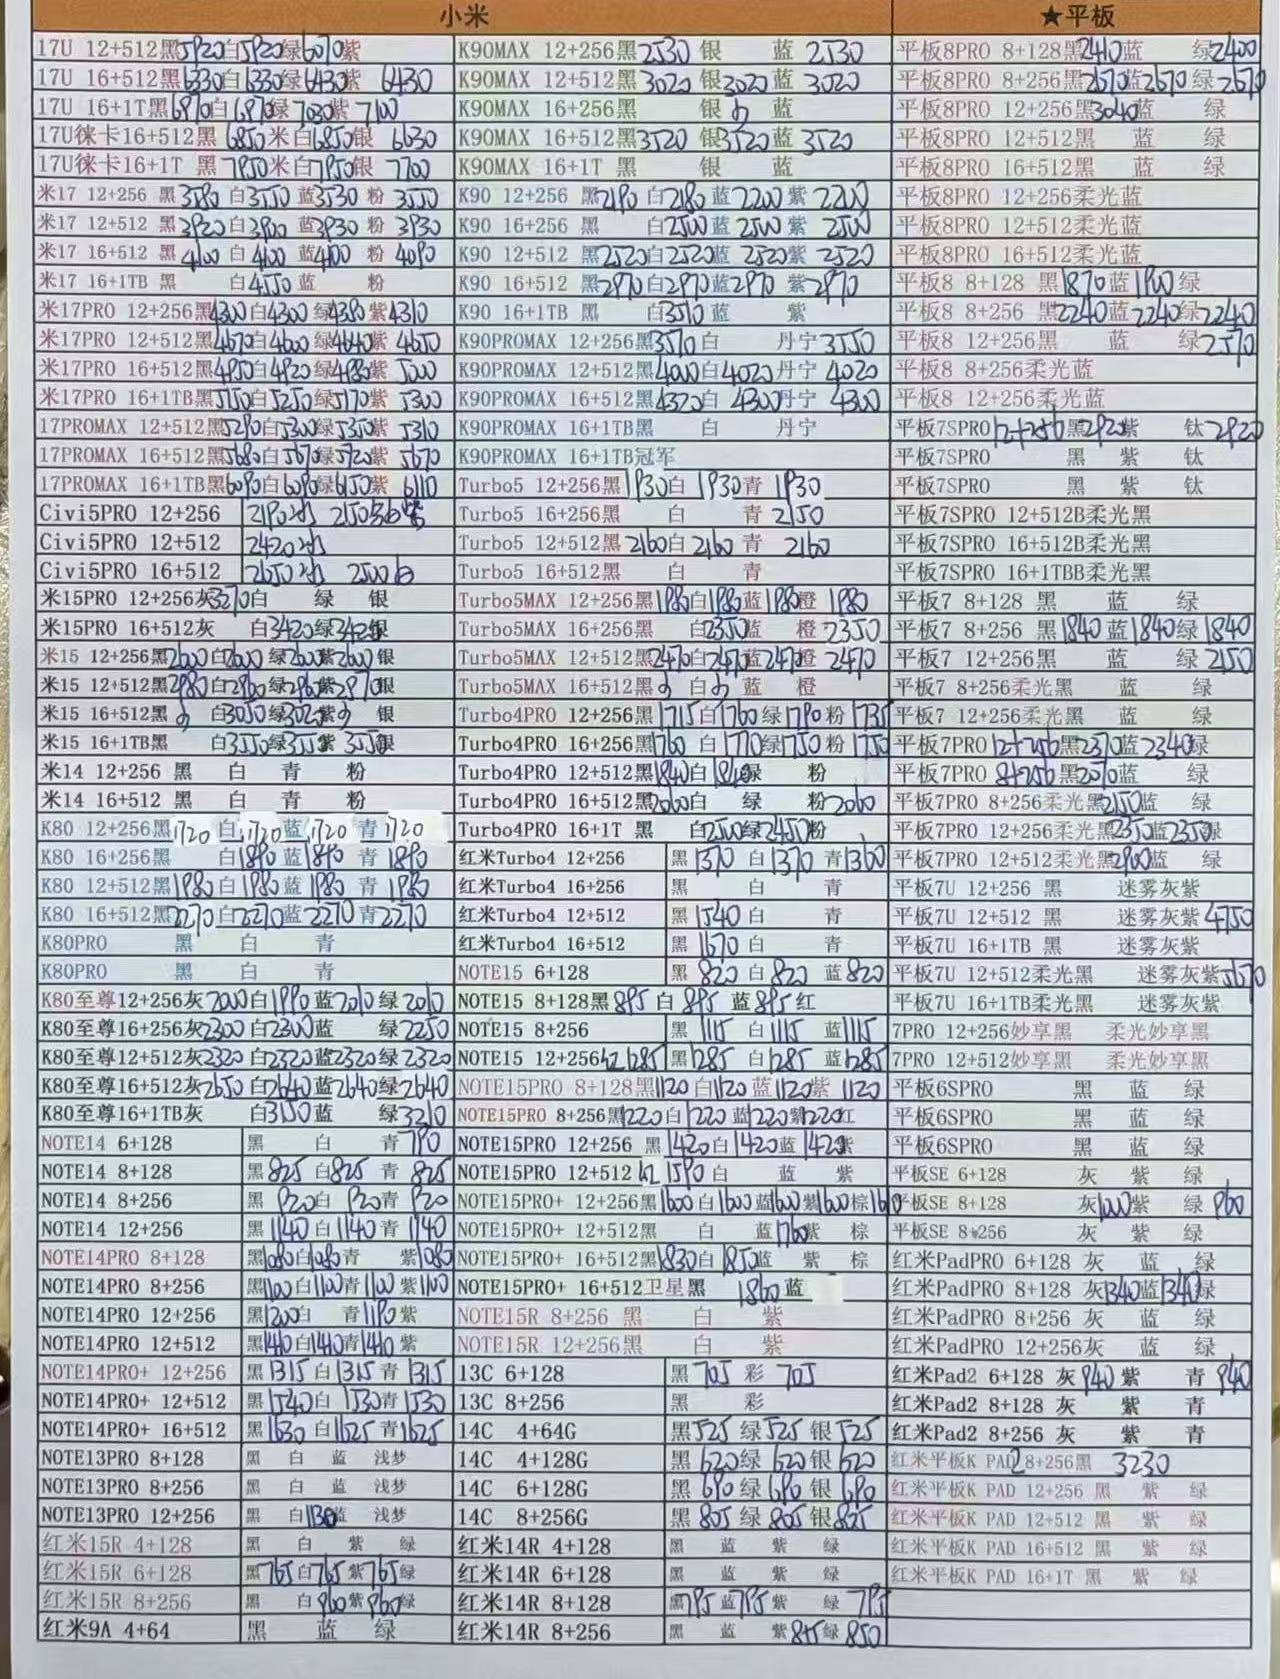 小米
17U 12+512黑5920白5920绿6070紫
17U 16+512黑6330白6330绿6430紫 6430
17U 16+1T黑6970白6970绿 7030紫 7100
17U徕卡16+512黑 6850米白6850银 6630
17U徕卡16+1T 黑 7950米白7950银 7700
米17 12+256 黑 3580 白3550 蓝3530 粉 3550
米17 12+512 黑 3920 白3900 蓝3930 粉 3930
米17 16+512 黑 4100 白4100 蓝4100 粉 4090
米17 16+1TB 黑 白4550 蓝 粉
米17PRO 12+256黑4300白4300 绿4380紫4310
米17PRO 12+512黑4670白4600 绿4640紫 4650
米17PRO 16+512黑4950白4920绿4980紫 5000
米17PRO 16+1TB黑5150白5250绿5170紫 5300
17PROMAX 12+512黑5290白5300绿5350紫 5310
17PROMAX 16+512黑5680白5670绿5720紫 5670
17PROMAX 16+1TB黑6090白6090绿6150紫 6110
Civi5PRO 12+256 2190冰 2150白紫
Civi5PRO 12+512 2420冰
Civi5PRO 16+512 2650冰 2500白
米15PRO 12+256灰3270白 绿 银
米15PRO 16+512灰 白3420绿3420银
米15 12+256黑2600白2600 绿2600紫2600 银
米15 12+512黑2980白2960 绿2960紫2970银
米15 16+512黑 白3050绿3020紫 银
米15 16+1TB黑 白3550绿3550紫 3550银
米14 12+256 黑 白 青 粉
米14 16+512 黑 白 青 粉
K80 12+256黑1720 白1720蓝1720 青1720
K80 16+256黑 白1890蓝1890 青 1890
K80 12+512黑1980白1980蓝1980 青 1980
K80 16+512黑2270白2270蓝2270青2270
K80PRO 黑 白 青
K80PRO 黑 白 青
K80至尊12+256灰2000白1990蓝2010绿2010
K80至尊16+256灰2300白2300蓝 绿2250
K80至尊12+512灰2320白2320蓝2320绿2320
K80至尊16+512灰2650白2640蓝2640绿2640
K80至尊16+1TB灰 白3150蓝 绿3210
NOTE14 6+128 黑 白 青790
NOTE14 8+128 黑825 白825 青 825
NOTE14 8+256 黑 920白 920青 920
NOTE14 12+256 黑1140白1140青1140
NOTE14PRO 8+128 黑1080白1080青 紫1080
NOTE14PRO 8+256 黑1100白1100青1100紫1100
NOTE14PRO 12+256 黑1200白 青1190紫
NOTE14PRO 12+512 黑1410白1410青1410 紫
NOTE14PRO+ 12+256 黑1315白1315青1315
NOTE14PRO+ 12+512 黑1540白1530青1530
NOTE14PRO+ 16+512 黑1630 白1625青1625
NOTE13PRO 8+128 黑 白 蓝 浅梦
NOTE13PRO 8+256 黑 白 蓝 浅梦
NOTE13PRO 12+256 黑 白1130蓝 浅梦
红米15R 4+128 黑 白 紫 绿
红米15R 6+128 黑765白765紫765绿
红米15R 8+256 黑 白960紫960绿
红米9A 4+64 黑 蓝 绿
K90MAX 12+256黑2530 银 蓝 2530
K90MAX 12+512黑3020 银3020 蓝 3020
K90MAX 16+256黑 银 蓝
K90MAX 16+512黑3520 银3520 蓝 3520
K90MAX 16+1T 黑 银 蓝
K90 12+256 黑2190 白2180 蓝2200 紫 2200
K90 16+256 黑 白2500蓝 2500 紫 2500
K90 12+512 黑2520白2520蓝 2520紫 2520
K90 16+512 黑2970白2970蓝2970 紫2970
K90 16+1TB 黑 白3510蓝 紫
K90PROMAX 12+256黑3570白 丹宁3550
K90PROMAX 12+512黑4000白4020 丹宁 4020
K90PROMAX 16+512黑4320白 4300丹宁 4300
K90PROMAX 16+1TB黑 白 丹宁
K90PROMAX 16+1TB冠军
Turbo5 12+256黑1930白 1930青 1930
Turbo5 16+256黑 白 青 2150
Turbo5 12+512黑 2160白 2160 青 2160
Turbo5 16+512黑 白 青
Turbo5MAX 12+256黑1980白1980蓝1980橙 1980
Turbo5MAX 16+256黑 白2350蓝 橙 2350
Turbo5MAX 12+512黑2470白2470蓝2470橙 2470
Turbo5MAX 16+512黑 白 蓝 橙
Turbo4PRO 12+256黑1715白1760 绿1790粉 1735
Turbo4PRO 16+256黑1760 白 1770绿1750 粉 1750
Turbo4PRO 12+512黑1840白1840绿 粉
Turbo4PRO 16+512黑2060白 绿 粉2060
Turbo4PRO 16+1T 黑 白2500绿2450粉
红米Turbo4 12+256 黑1370 白1370 青1360
红米Turbo4 16+256 黑 白 青
红米Turbo4 12+512 黑1540 白 青
红米Turbo4 16+512 黑1670 白 青
NOTE15 6+128 黑 820 白820 蓝820
NOTE15 8+128黑895 白 895 蓝895 红
NOTE15 8+256 黑 1115 白1115 蓝1115
NOTE15 12+256红1285 黑1285 白1285 蓝1285
NOTE15PRO 8+128黑1120白1120蓝1120紫 1120
NOTE15PRO 8+256黑1220白1220 蓝1220紫1220红
NOTE15PRO 12+256 黑1420白1420蓝1420紫
NOTE15PRO 12+512 红 1590白 蓝 紫
NOTE15PRO+ 12+256黑1600白1600蓝1600紫1600棕1610
NOTE15PRO+ 12+512黑 白 蓝1760紫 棕
NOTE15PRO+ 16+512黑1830白1850蓝 紫 棕
NOTE15PRO+ 16+512卫星黑 1860蓝
NOTE15R 8+256 黑 白 紫
NOTE15R 12+256黑 白 紫
13C 6+128 黑 705 彩 705
13C 8+256 黑 彩
14C 4+64G 黑525 绿525 银525
14C 4+128G 黑620绿620 银620
14C 6+128G 黑690绿690 银690
14C 8+256G 黑 805 绿805银805
红米14R 4+128 黑 蓝 紫 绿
红米14R 6+128 黑 蓝 紫 绿
红米14R 8+128 黑795 蓝795 紫 绿 795
红米14R 8+256 黑 蓝 紫845绿 850
★平板
平板8PRO 8+128黑2410蓝 绿2400
平板8PRO 8+256黑2670蓝2670 绿 2670
平板8PRO 12+256黑3040蓝 绿
平板8PRO 12+512黑 蓝 绿
平板8PRO 16+512黑 蓝 绿
平板8PRO 12+256柔光蓝
平板8PRO 12+512柔光蓝
平板8PRO 16+512柔光蓝
平板8 8+128 黑1870蓝1900 绿
平板8 8+256 黑2240蓝2240绿2240
平板8 12+256黑 蓝 绿2570
平板8 8+256柔光蓝
平板8 12+256柔光蓝
平板7SPRO 12+256黑2920紫 钛2920
平板7SPRO 黑 紫 钛
平板7SPRO 黑 紫 钛
平板7SPRO 12+512B柔光黑
平板7SPRO 16+512B柔光黑
平板7SPRO 16+1TBB柔光黑
平板7 8+128 黑 蓝 绿
平板7 8+256 黑1840 蓝1840绿1840
平板7 12+256黑 蓝 绿 2150
平板7 8+256柔光黑 蓝 绿
平板7 12+256柔光黑 蓝 绿
平板7PRO 12+256黑2370蓝2340绿
平板7PRO 8+256黑2070蓝 绿
平板7PRO 8+256柔光黑2150蓝 绿
平板7PRO 12+256柔光黑2350蓝2350绿
平板7PRO 12+512柔光黑2900蓝 绿
平板7U 12+256 黑 迷雾灰紫
平板7U 12+512 黑 迷雾灰紫 4750
平板7U 16+1TB 黑 迷雾灰紫
平板7U 12+512柔光黑 迷雾灰紫5070
平板7U 16+1TB柔光黑 迷雾灰紫
7PRO 12+256妙享黑 柔光妙享黑
7PRO 12+512妙享黑 柔光妙享黑
平板6SPRO 黑 蓝 绿
平板6SPRO 黑 蓝 绿
平板6SPRO 黑 蓝 绿
平板SE 6+128 灰 紫 绿
平板SE 8+128 灰1000紫 绿 960
平板SE 8+256 灰 紫 绿
红米PadPRO 6+128 灰 蓝 绿
红米PadPRO 8+128 灰1340蓝1340绿
红米PadPRO 8+256 灰 蓝 绿
红米PadPRO 12+256灰 蓝 绿
红米Pad2 6+128 灰 940紫 青 940
红米Pad2 8+128 灰 紫 青
红米Pad2 8+256 灰 紫 青
红米平板K PAD2 8+256黑 3230
红米平板K PAD 12+256 黑 紫 绿
红米平板K PAD 12+512 黑 紫 绿
红米平板K PAD 16+512 黑 紫 绿
红米平板K PAD 16+1T 黑 紫 绿